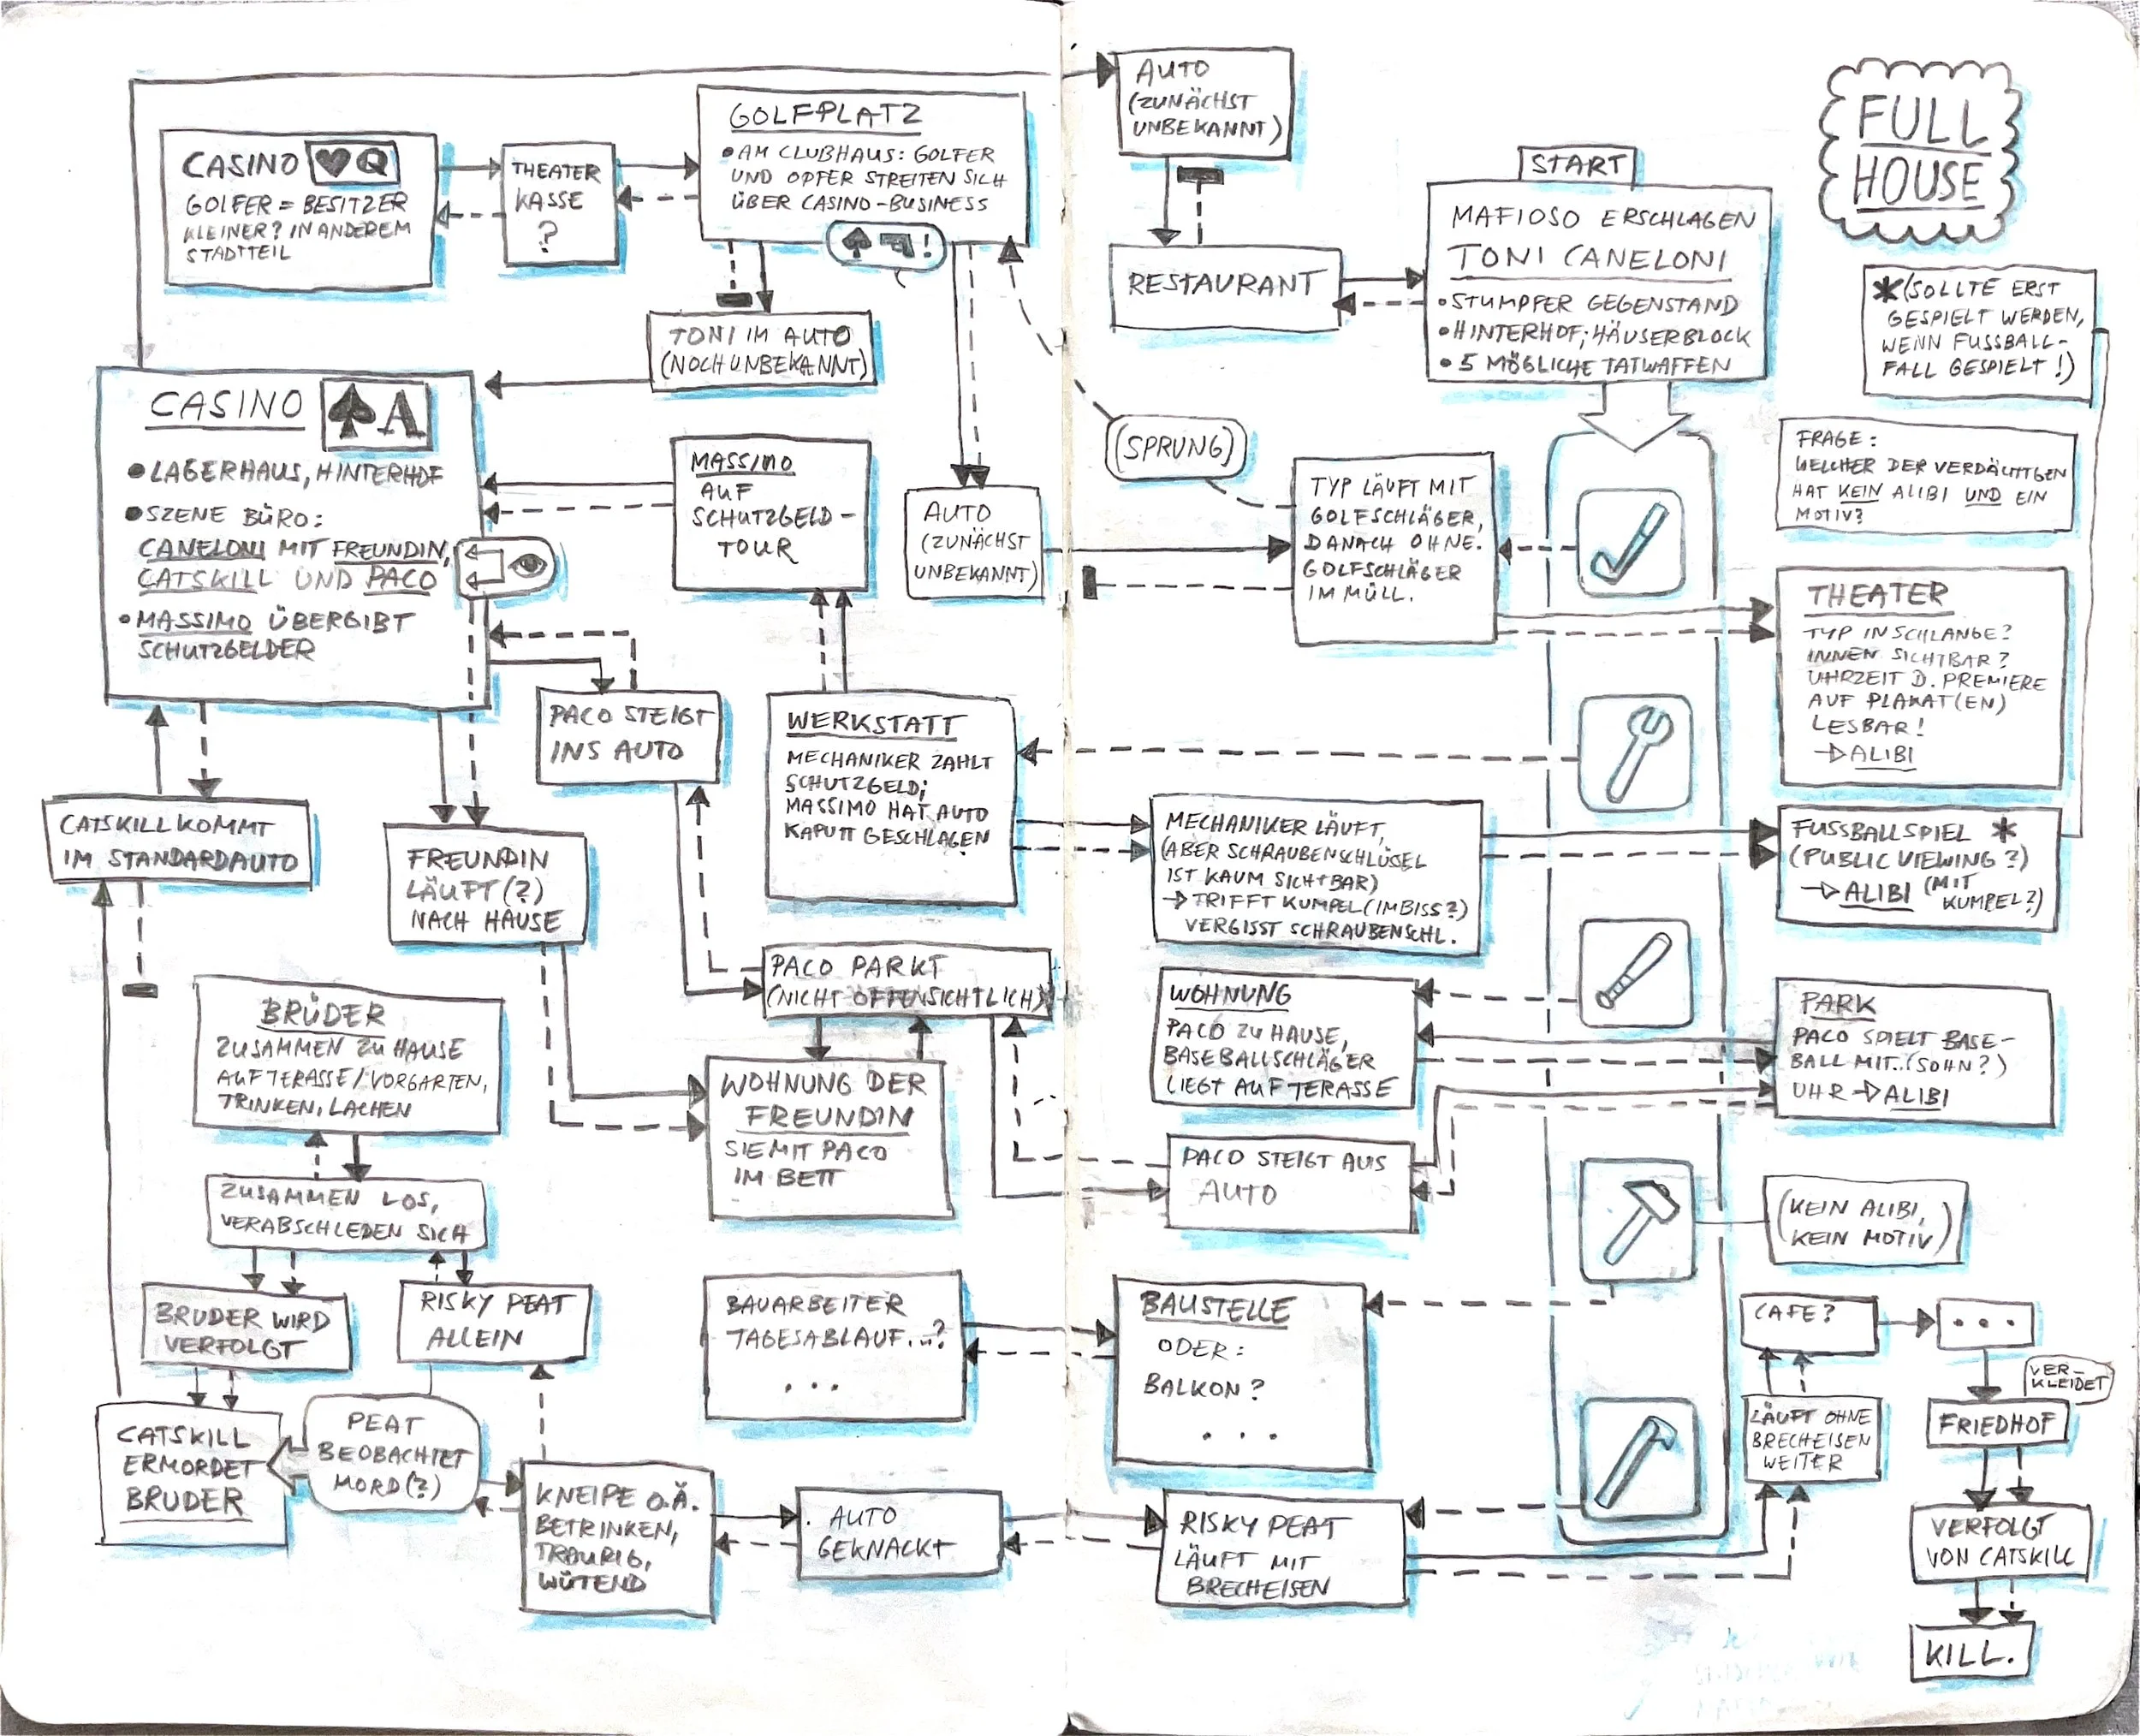 CASINO ♥ Q
GOLFER = BESITZER
KLEINER? IN ANDEREM
STADTTEIL
THEATER
KASSE
?
GOLFPLATZ
• AM CLUBHAUS: GOLFER
UND OPFER STREITEN SICH
ÜBER CASINO-BUSINESS
♠ !
TONI IM AUTO
(NOCH UNBEKANNT)
CASINO ♠ A
• LAGERHAUS, HINTERHOF
• SZENE BÜRO:
CANELONI MIT FREUNDIN,
CATSKILL UND PACO
• MASSIMO ÜBERGIBT
SCHUTZGELDER
MASSIMO
AUF
SCHUTZGELD-
TOUR
AUTO
(ZUNÄCHST
UNBEKANNT)
PACO STEIGT
INS AUTO
WERKSTATT
MECHANIKER ZAHLT
SCHUTZGELD;
MASSIMO HAT AUTO
KAPUTT GESCHLAGEN
CATSKILL KOMMT
IM STANDARDAUTO
FREUNDIN
LÄUFT(?)
NACH HAUSE
PACO PARKT
(NICHT OFFENSICHTLICH)
BRÜDER
ZUSAMMEN ZU HAUSE
AUF TERASSE/VORGARTEN,
TRINKEN, LACHEN
WOHNUNG DER
FREUNDIN
SIE MIT PACO
IM BETT
ZUSAMMEN LOS,
VERABSCHIEDEN SICH
BRUDER WIRD
VERFOLGT
RISKY PEAT
ALLEIN
BAUARBEITER
TAGESABLAUF...?
...
CATSKILL
ERMORDET
BRUDER
PEAT
BEOBACHTET
MORD(?)
KNEIPE O.Ä.
BETRINKEN,
TRAURIG,
WÜTEND
AUTO
GEKNACKT
AUTO
(ZUNÄCHST
UNBEKANNT)
RESTAURANT
START
MAFIOSO ERSCHLAGEN
TONI CANELONI
• STUMPFER GEGENSTAND
• HINTERHOF; HÄUSERBLOCK
• 5 MÖGLICHE TATWAFFEN
FULL
HOUSE
* (SOLLTE ERST
GESPIELT WERDEN,
WENN FUSSBALL-
FALL GESPIELT!)
(SPRUNG)
TYP LÄUFT MIT
GOLFSCHLÄGER,
DANACH OHNE.
GOLFSCHLÄGER
IM MÜLL.
FRAGE:
WELCHER DER VERDÄCHTIGEN
HAT KEIN ALIBI UND EIN
MOTIV?
THEATER
TYP IN SCHLANGE?
INNEN SICHTBAR?
UHRZEIT D. PREMIERE
AUF PLAKAT(EN)
LESBAR!
→ ALIBI
MECHANIKER LÄUFT,
(ABER SCHRAUBENSCHLÜSSEL
IST KAUM SICHTBAR)
→ TRIFFT KUMPEL (IMBISS?)
VERGISST SCHRAUBENSCHL.
FUSSBALLSPIEL *
(PUBLIC VIEWING?)
→ ALIBI (MIT
KUMPEL?)
WOHNUNG
PACO ZU HAUSE,
BASEBALLSCHLÄGER
LIEGT AUF TERASSE
PARK
PACO SPIELT BASE-
BALL MIT..(SOHN?)
UHR → ALIBI
PACO STEIGT AUS
AUTO
(KEIN ALIBI,
KEIN MOTIV)
BAUSTELLE
ODER:
BALKON?
...
CAFE?
...
VER-
KLEIDET
LÄUFT OHNE
BRECHEISEN
WEITER
FRIEDHOF
RISKY PEAT
LÄUFT MIT
BRECHEISEN
VERFOLGT
VON CATSKILL
KILL.